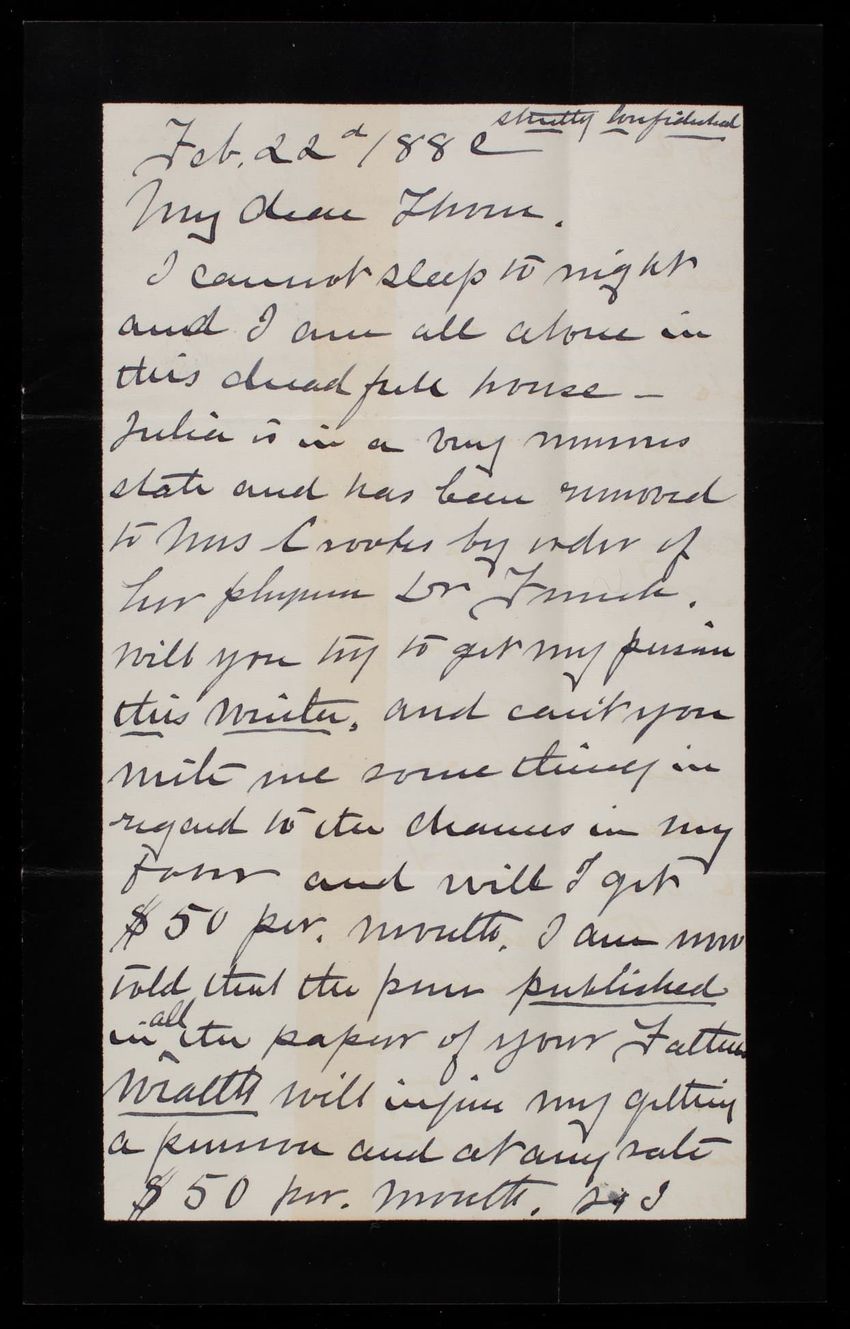 strictly Confidential
Feb. 22d /88
My dear Thom.
I cannot sleep to night
and I am all alone in
this dreadfull house –
Julia is in a very nervous
state and has been removed
to Mrs Crooks by order of
her physician Dr French.
will you try to get my pension
this winter, and can't you
write me something in
regard to the chances in my
favor and will I get
$50 per. month. I am now
told that the puss published
in all the paper of your Fathers
Wealth will injure my getting
a pension and at any rate
$50 per. month. I